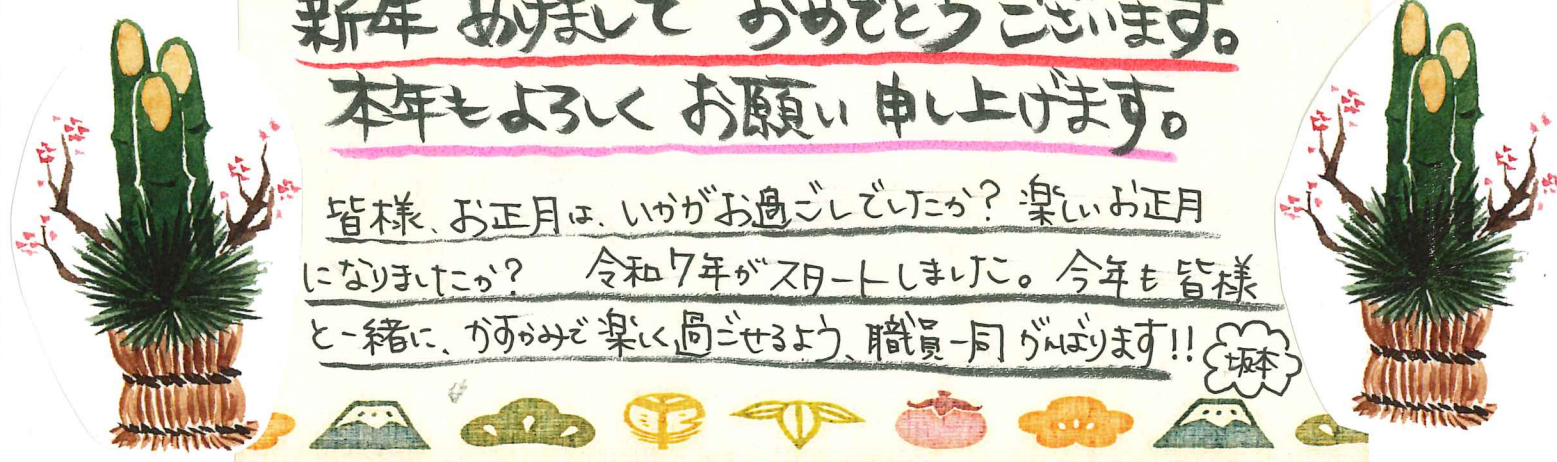 新年 あけまして おめでとう ございます。
本年もよろしく お願い 申し上げます。
皆様、お正月は、いかがお過ごしでしたか？ 楽しいお正月
になりましたか？ 令和7年がスタートしました。今年も皆様
と一緒に、かすかみで楽しく過ごせるよう、職員一同 がんばります!!
坂本